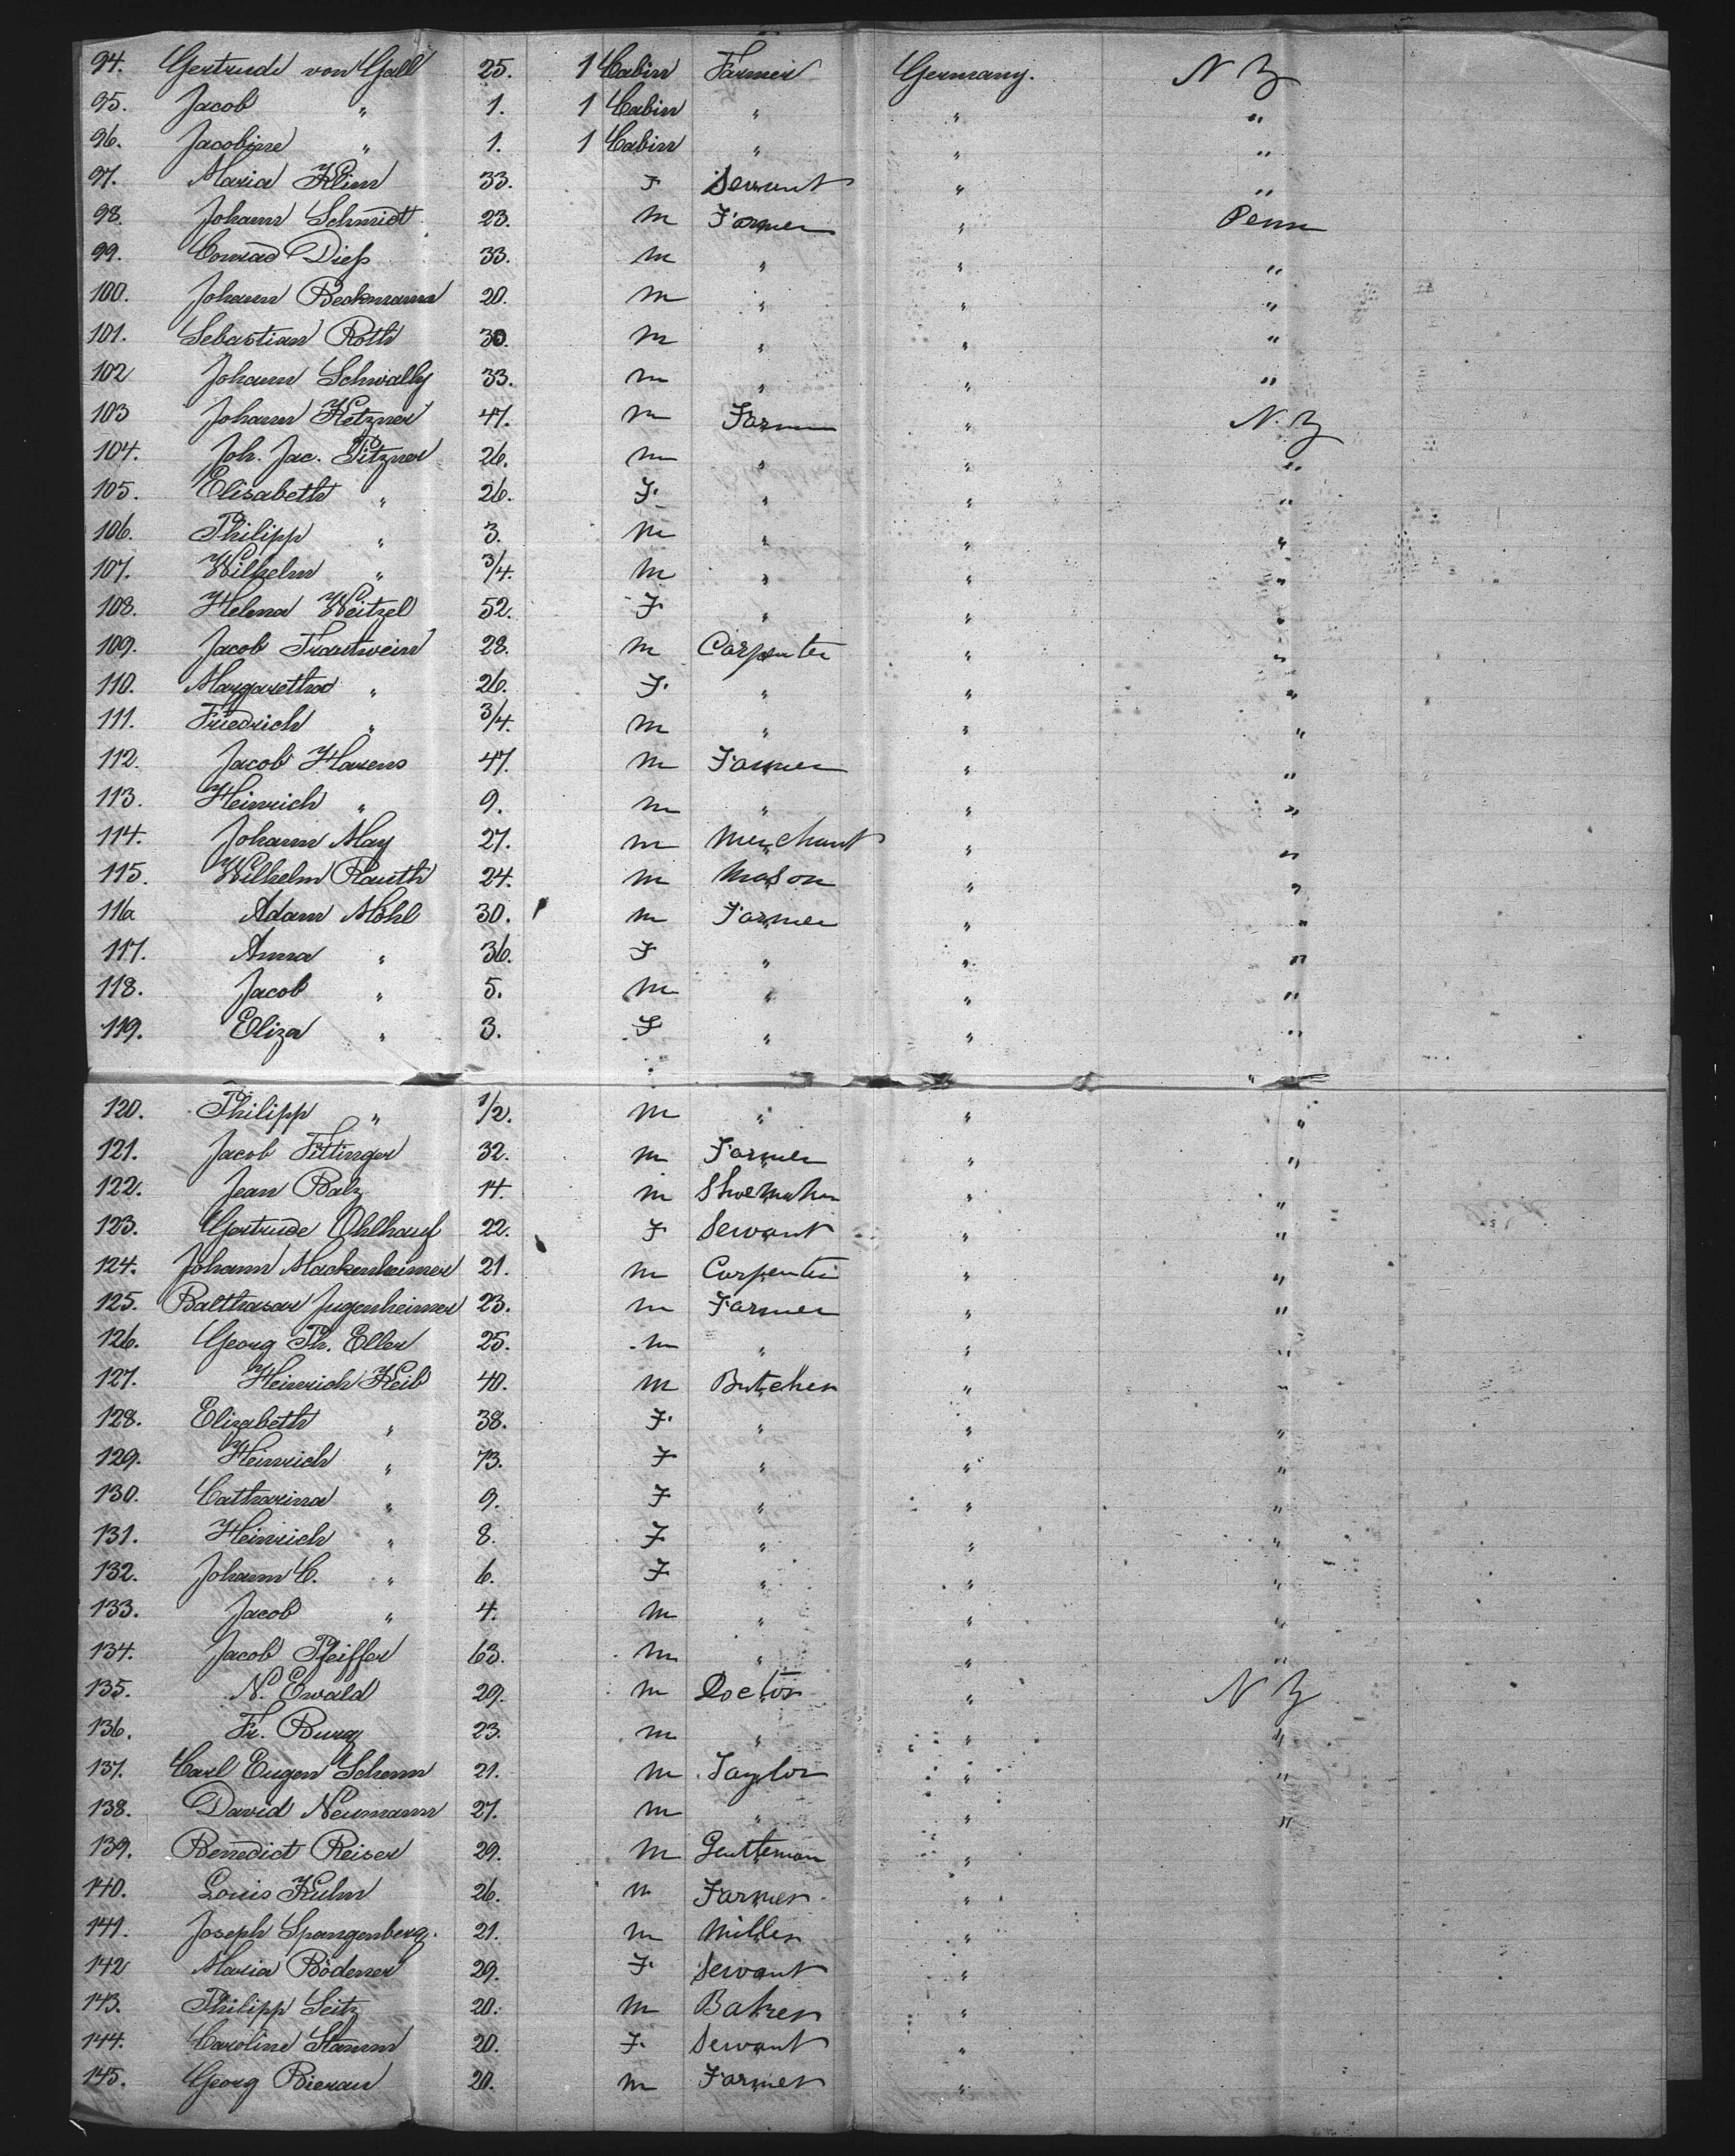 94. Gertrude von Gall 25. 1 Cabin Farmer Germany. N Y
95. Jacob " 1. 1 Cabin " " "
96. Jacobine " 1. 1 Cabin " " "
97. Maria Klein 33. F Servant " "
98. Johann Schmidt 23. M Farmer " Penn
99. Conrad Dieß 33. M " " "
100. Johann Beckmann 20. M " " "
101. Sebastian Roth 30. M " " "
102 Johann Schwally 33. M " " "
103 Johann Ketzner 47. M Farmer " N. Y
104. Joh. Jac. Pitzner 26. M " " "
105. Elisabeth " 26. F. " " "
106. Philipp " 3. M " " "
107. Wilhelm " 3/4. M " " "
108. Helena Weitzel 52. F " " "
109. Jacob Trautwein 28. M Carpenter " "
110. Margaretha " 26. F. " " "
111. Friedrich " 3/4. M " " "
112. Jacob Havens 47. M Farmer " "
113. Heinrich " 9. M " " "
114. Johann May 27. M Merchant " "
115. Wilhelm Rauth 24. M Mason " "
116 Adam Möhl 30. M Farmer " "
117. Anna " 36. F " " "
118. Jacob " 5. M " " "
119. Eliza " 3. F " " "
120. Philipp " 1/2. M " " "
121. Jacob Fittinger 32. M Farmer " "
122. Jean Balz 14. M Shoemaker " "
123. Gertrude Ohlhauf 22. F Servant " "
124. Johann Mackenheimer 21. M Carpenter " "
125. Balthasar Jugenheimer 23. M Farmer " "
126. Georg Ph. Eller 25. M " " "
127. Heinrich Keib 40. M Butcher " "
128. Elizabeth " 38. F. " " "
129. Heinrich " 73. F " " "
130. Catharina " 9. F " " "
131. Heinrich " 8. F " " "
132. Johann C. " 6. F " " "
133. Jacob " 4. M " " "
134. Jacob Pfeiffer 63. M " " "
135. N. Ewald 29. M Doctor " N Y
136. Fr. Burg 23. M " " "
137. Carl Eugen Schenn 21. M Taylor " "
138. David Neumann 27. M " " "
139. Benedict Reiser 29. M Gentleman "
140. Louis Kuhn 26. M Farmer "
141. Joseph Spangenberg. 21. M Miller "
142 Maria Bödener 29. F. Servant "
143. Philipp Seitz 20. M Baker "
144. Caroline Stamm 20. F. Servant "
145. Georg Bierau 20. M Farmer "